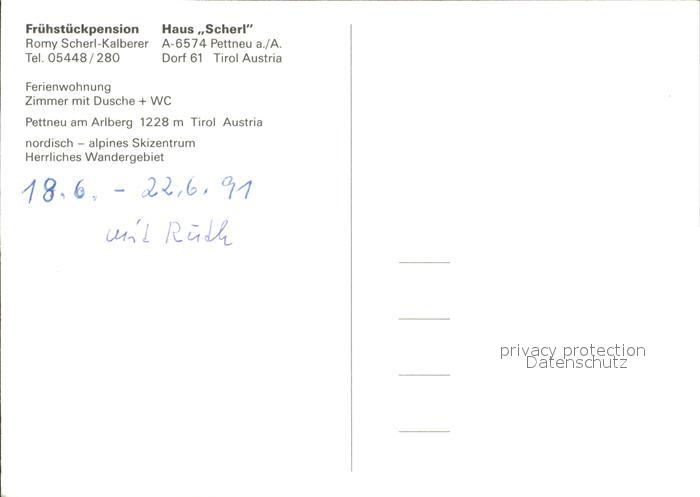 Frühstückpension Haus „Scherl"
Romy Scherl-Kalberer A-6574 Pettneu a./A.
Tel. 05448/280 Dorf 61 Tirol Austria
Ferienwohnung
Zimmer mit Dusche + WC
Pettneu am Arlberg 1228 m Tirol Austria
nordisch – alpines Skizentrum
Herrliches Wandergebiet
18.6. - 22.6.91
mit Ruth
privacy protection
Datenschutz